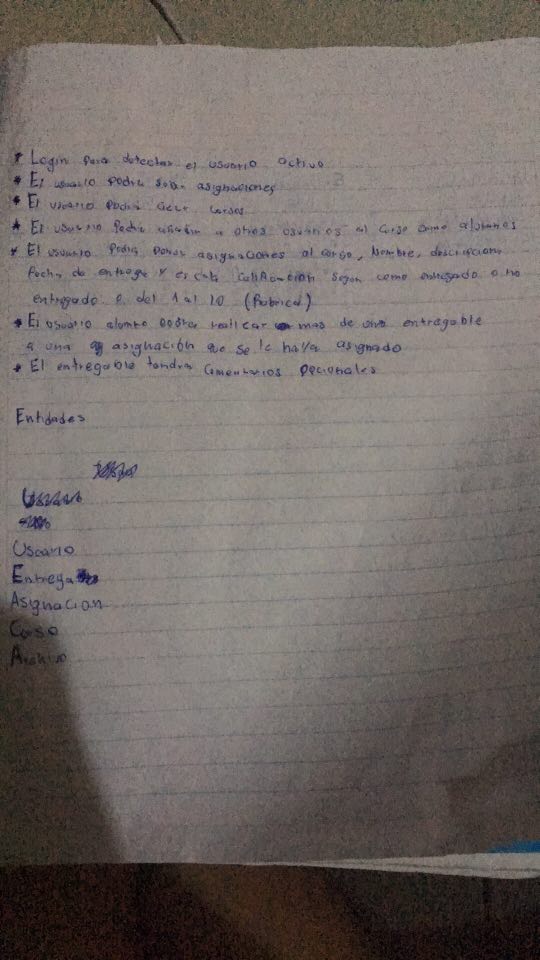 * Login para detectar el usuario activo
* El usuario podra subir asignaciones
* El usuario podra crear cursos
* El usuario podra añadir a otros usuarios al curso como alumnos
* El usuario podra poner asignaciones al curso, Nombre, descripcion
fecha de entrega y escala Calificacion segun como entregado o no
entregado o del 1 al 10 (Rubrica)
* El usuario alumno podra realizar mas de uno entregable
a una asignación que se le haya asignado
* El entregable tendra comentarios opcionales
Entidades
Usuario
Entrega
Asignacion
Curso
Archivo